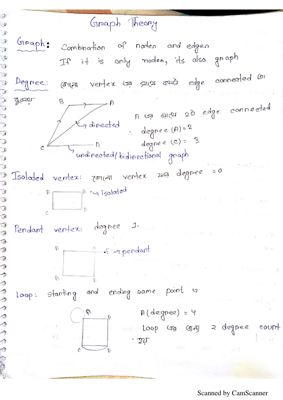 Graph Theory
Graph: Combination of nodes and edges
If it is only nodes, its also graph
Degree: কোন vertex এর সাথে কয়টি edge connected তা
বুঝায়
B A
A এর সাথে 2টি edge connected
directed
degree (A) = 2
degree (C) = 3
C
undirected/bidirectional graph
Isolated vertex: কোনো vertex যার degree = 0
Isolated
Pendant vertex: degree 1.
pendant
Loop: starting and ending same point
A (degree) = 4
Loop এর জন্য 2 degree count
হয়
Scanned by CamScanner